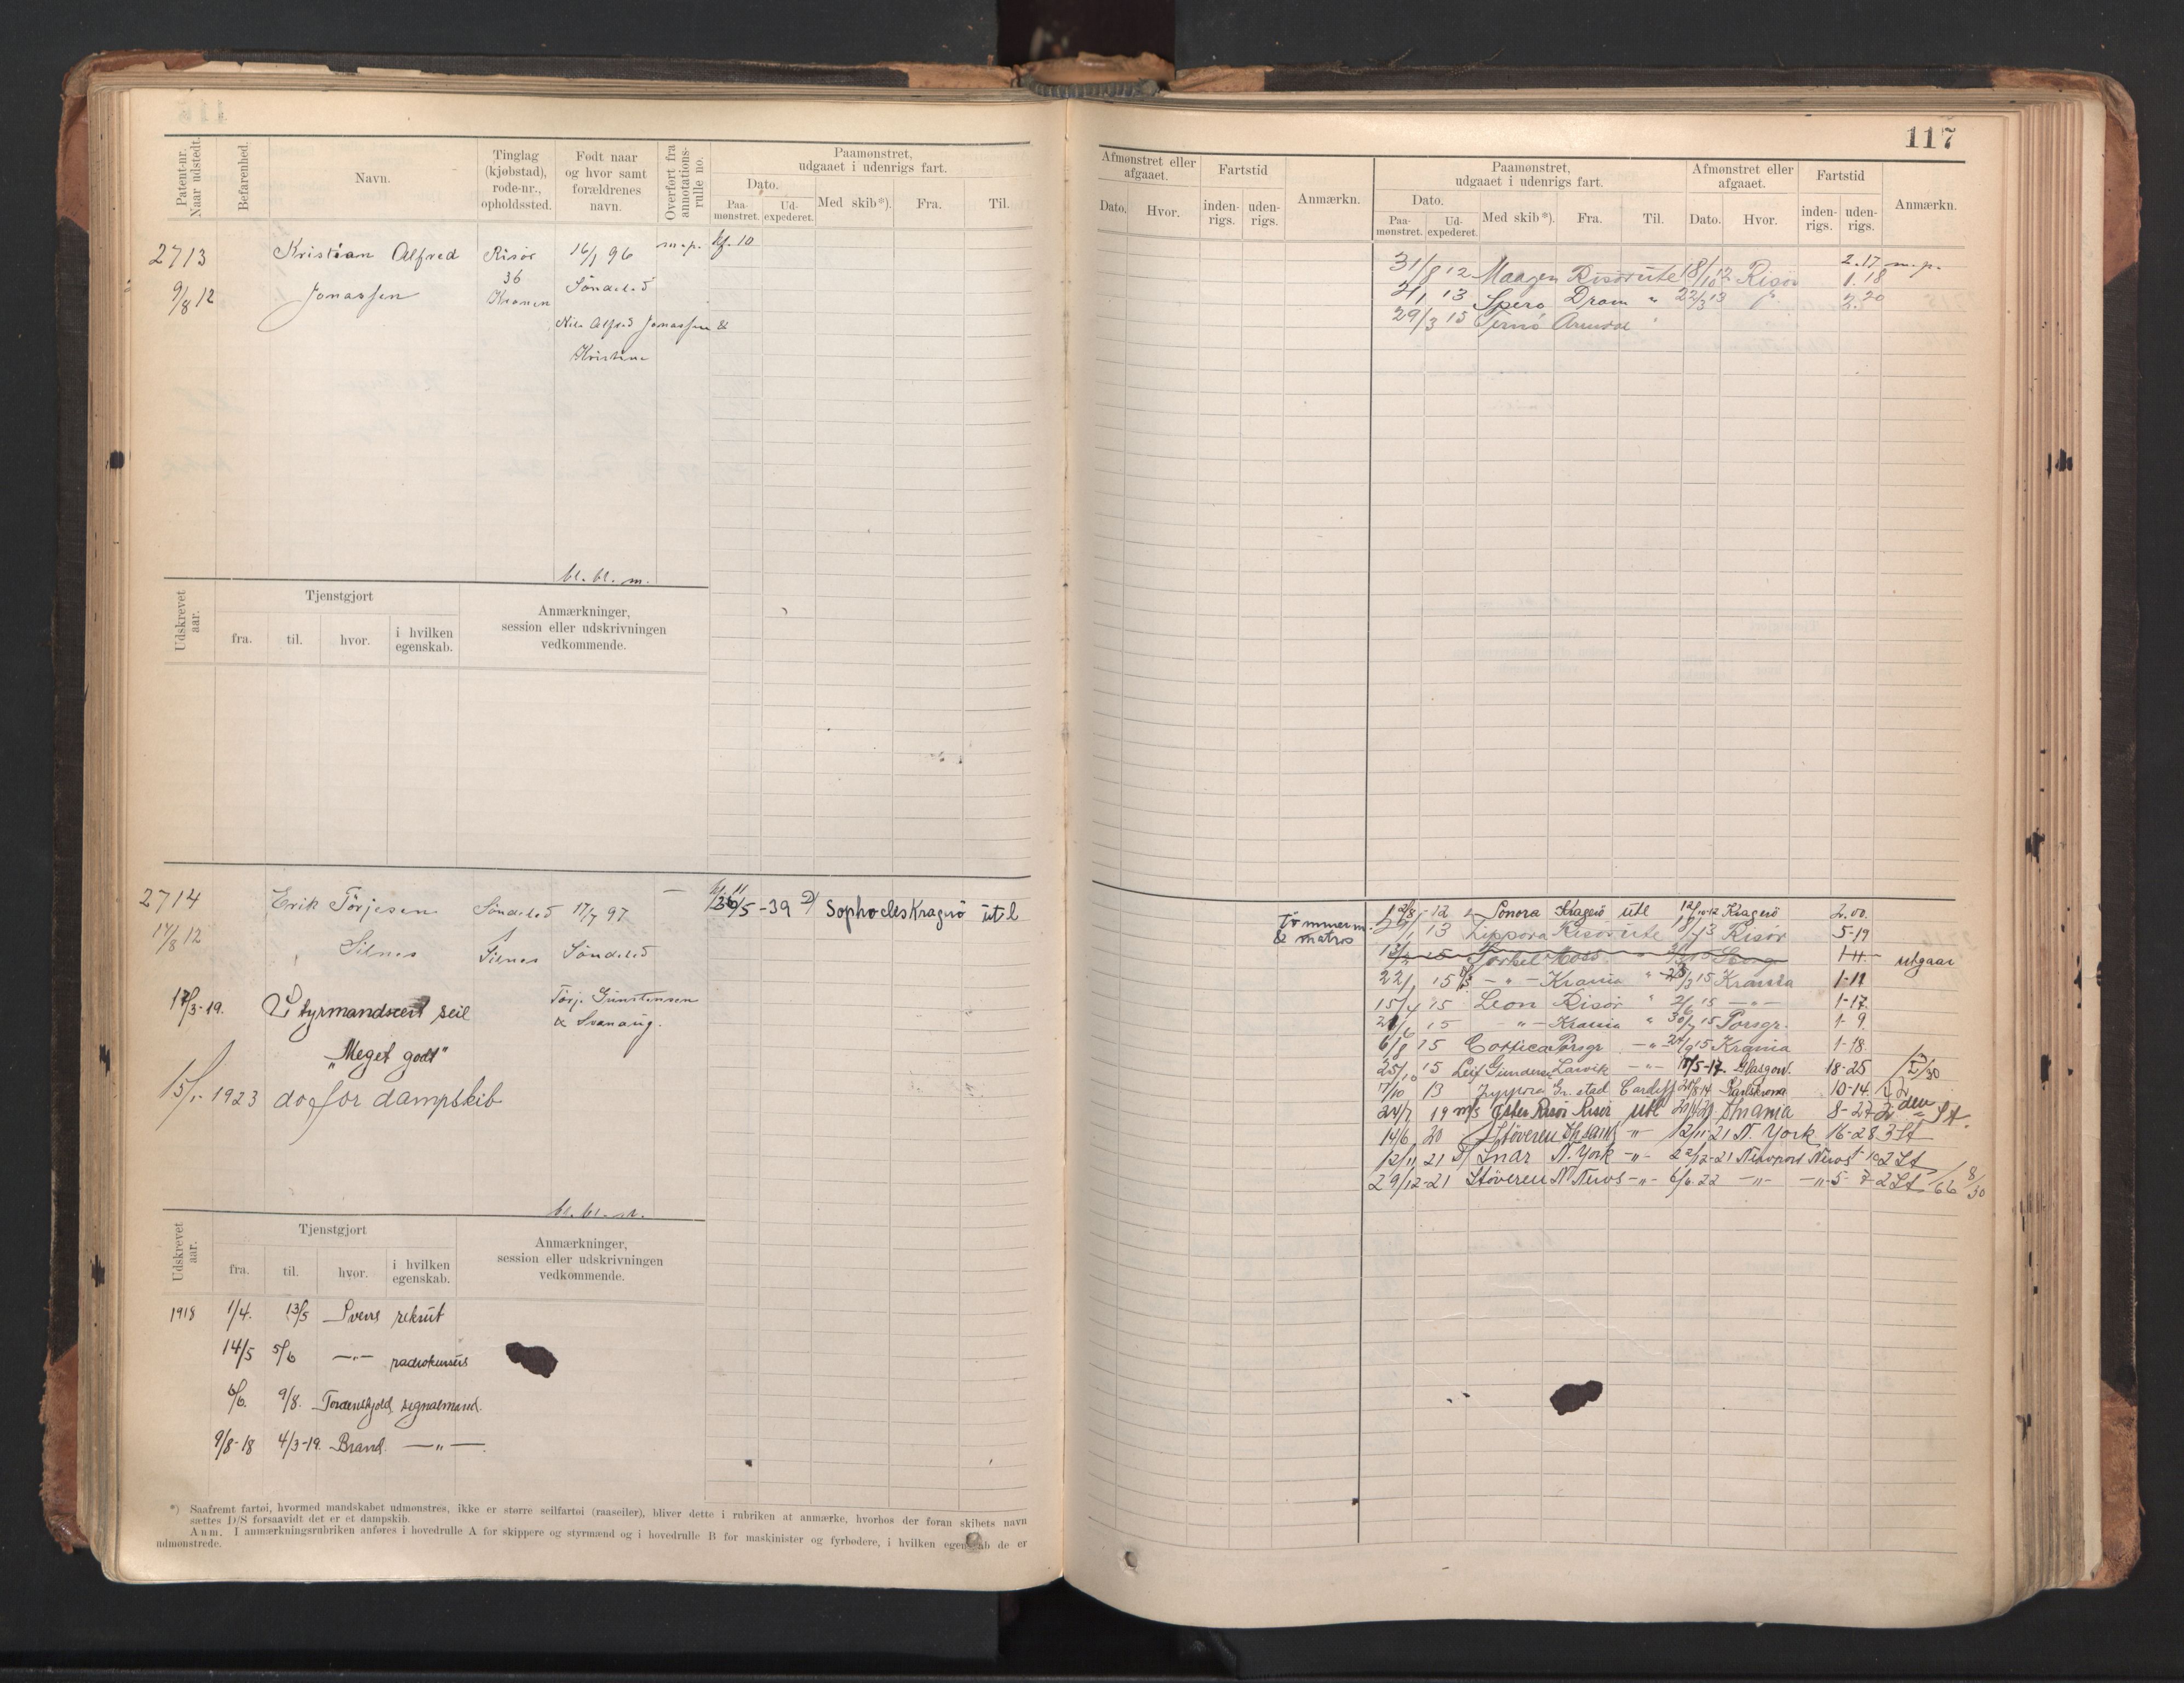 117
Patent-nr. Naar udstedt.
Befarenhed.
Navn.
Tinglag (kjøbstad), rode-nr., opholdssted.
Født naar og hvor samt forældrenes navn.
Overført fra annotations-rulle no.
Paamønstret, udgaaet i udenrigs fart.
Dato.
Paa-mønstret.
Ud-expederet.
Med skib*).
Fra.
Til.
2713
9/8 12
Kristian Alfred
Jonassen
Risör
36
Kranen
16/1 96
Söndeled
Nils Alfred Jonassen &
Kristine
m.p.
bl. bl. m.
Udskrevet aar.
Tjenstgjort
fra.
til.
hvor.
i hvilken egenskab.
Anmærkninger, session eller udskrivningen vedkommende.
2714
17/8 12
Erik Törjesen
Silnes
Söndeled
Silnes
17/7 97
Söndeled
Törje Gunstensen
& Svanaug.
—
26/5-39 D/ Sophocles Kragerö utl
17/3-19. Styrmandscert seil
"Meget godt"
15/1-1923 do for dampskib
bl. bl. st.
Udskrevet aar.
Tjenstgjort
fra.
til.
hvor.
i hvilken egenskab.
Anmærkninger, session eller udskrivningen vedkommende.
1918 1/4. 13/5 Sverre rekrut
14/5 5/6 —"— radiokursus
6/6. 9/8. Tordenskjold signalmand.
9/8-18 4/3-19. Brand. —"—.
*) Saafremt fartøi, hvormed mandskabet udmønstres, ikke er større seilfartøi (raaseiler), bliver dette i rubriken at anmærke, hvorhos der foran skibets navn
sættes D/S forsaavidt det er et dampskib.
Anm. I anmærkningsrubriken anføres i hovedrulle A for skippere og styrmænd og i hovedrulle B for maskinister og fyrbødere, i hvilken egenskab de er
udmønstrede.
Afmønstret eller afgaaet.
Dato.
Hvor.
Fartstid
inden-rigs.
uden-rigs.
Anmærkn.
Paamønstret, udgaaet i udenrigs fart.
Dato.
Paa-mønstret.
Ud-expederet.
Med skib*).
Fra.
Til.
Afmønstret eller afgaaet.
Dato.
Hvor.
Fartstid
inden-rigs.
uden-rigs.
Anmærkn.
31/8 12 Maagen Risör utl 18/10 12 Risör 2.17 m.p.
21/1 13 Spero Dram " 22/3 13 " 1.18
29/3 15 Ternö Arendal " 2.20
tömmerm.
& matros
12/8 - 12 Sonora Kragerö utl 12/10-12 Kragerö 2.00.
13 Zippora Risör utl 13 Risör 5-19
15 Torkel Moss 1-11 utgaar
22/1 15 —"— Krania " 15 Krania 1-11
15/4 15 Leon Risör " 2/6 15 —"— 1-17
15 —"— Krania " 30/7 15 Porsgr. 1-9.
6/8 15 Corticea Porsgr —"— 24/9 15 Krania 1-18.
25/10 15 Leif Gundersen Larvik —"— 5-17. Glasgow. 18-25
7/10 13 Zyppra Gr.stad Cardiff 14 Karlskrona 10-14.
24/7 19 m/s Öster Risör Risör utl Thania 8-27 2den St.
14/6 20 Stöveren —"— 12/11-21 N. York 16-28 3 St
12/11 21 D/ Snar N. York —"— 22/12-21 Newport News 2 St
29/12-21 Stöveren N News —"— 6/6. 22 —"— —"— 5-7 2 St